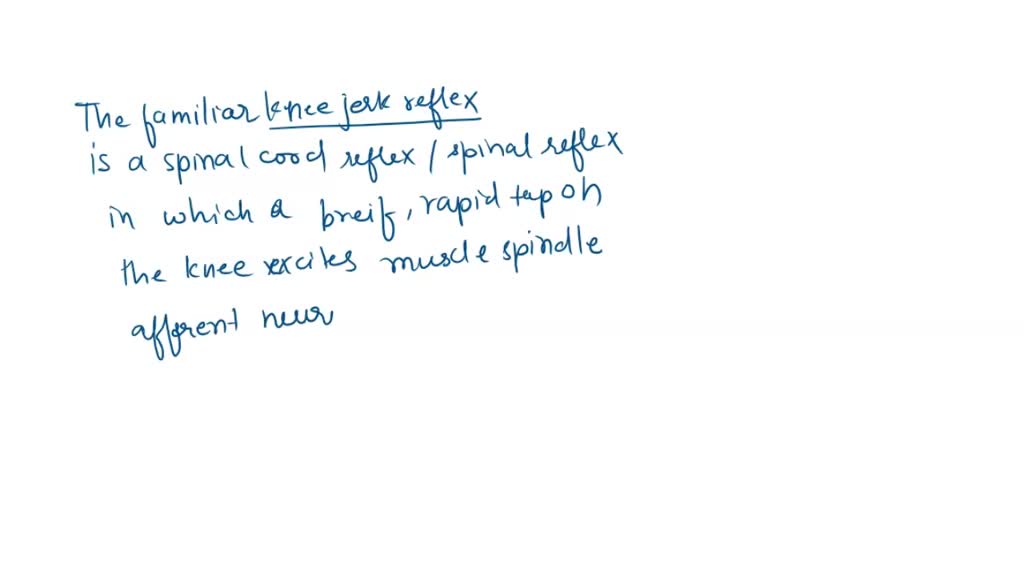 The familiar knee jerk reflex
is a spinal cood reflex / spinal reflex
in which a breif, rapid tap oh
the knee excites muscle spindle
afferent neur